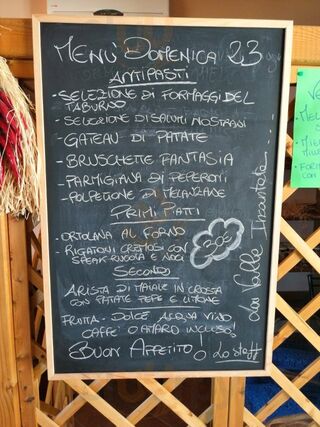 MENU DOMENICA 23
ANTIPASTI
- SELEZIONE DI FORMAGGI DEL
TABURNO
- SELEZIONE DI SALUMI NOSTRANI
- GATEAU DI PATATE
- BRUSCHETTE FANTASIA
- PARMIGIANA DI PEPERONI
- POLPETTINE DI MELANZANE
PRIMI PIATTI
- ORTOLANA AL FORNO
- RIGATONI CREMOSI CON
SPEAK-RUCOLA E NOCI
SECONDO
ARISTA DI MAIALE IN CROSTA
CON PATATE PEPE E LIMONE
FRUTTA - DOLCE ACQUA VINO
CAFFE' O AMARO INCLUSO!
BUON APPETITO!
Lo staff
La Valle Incantata